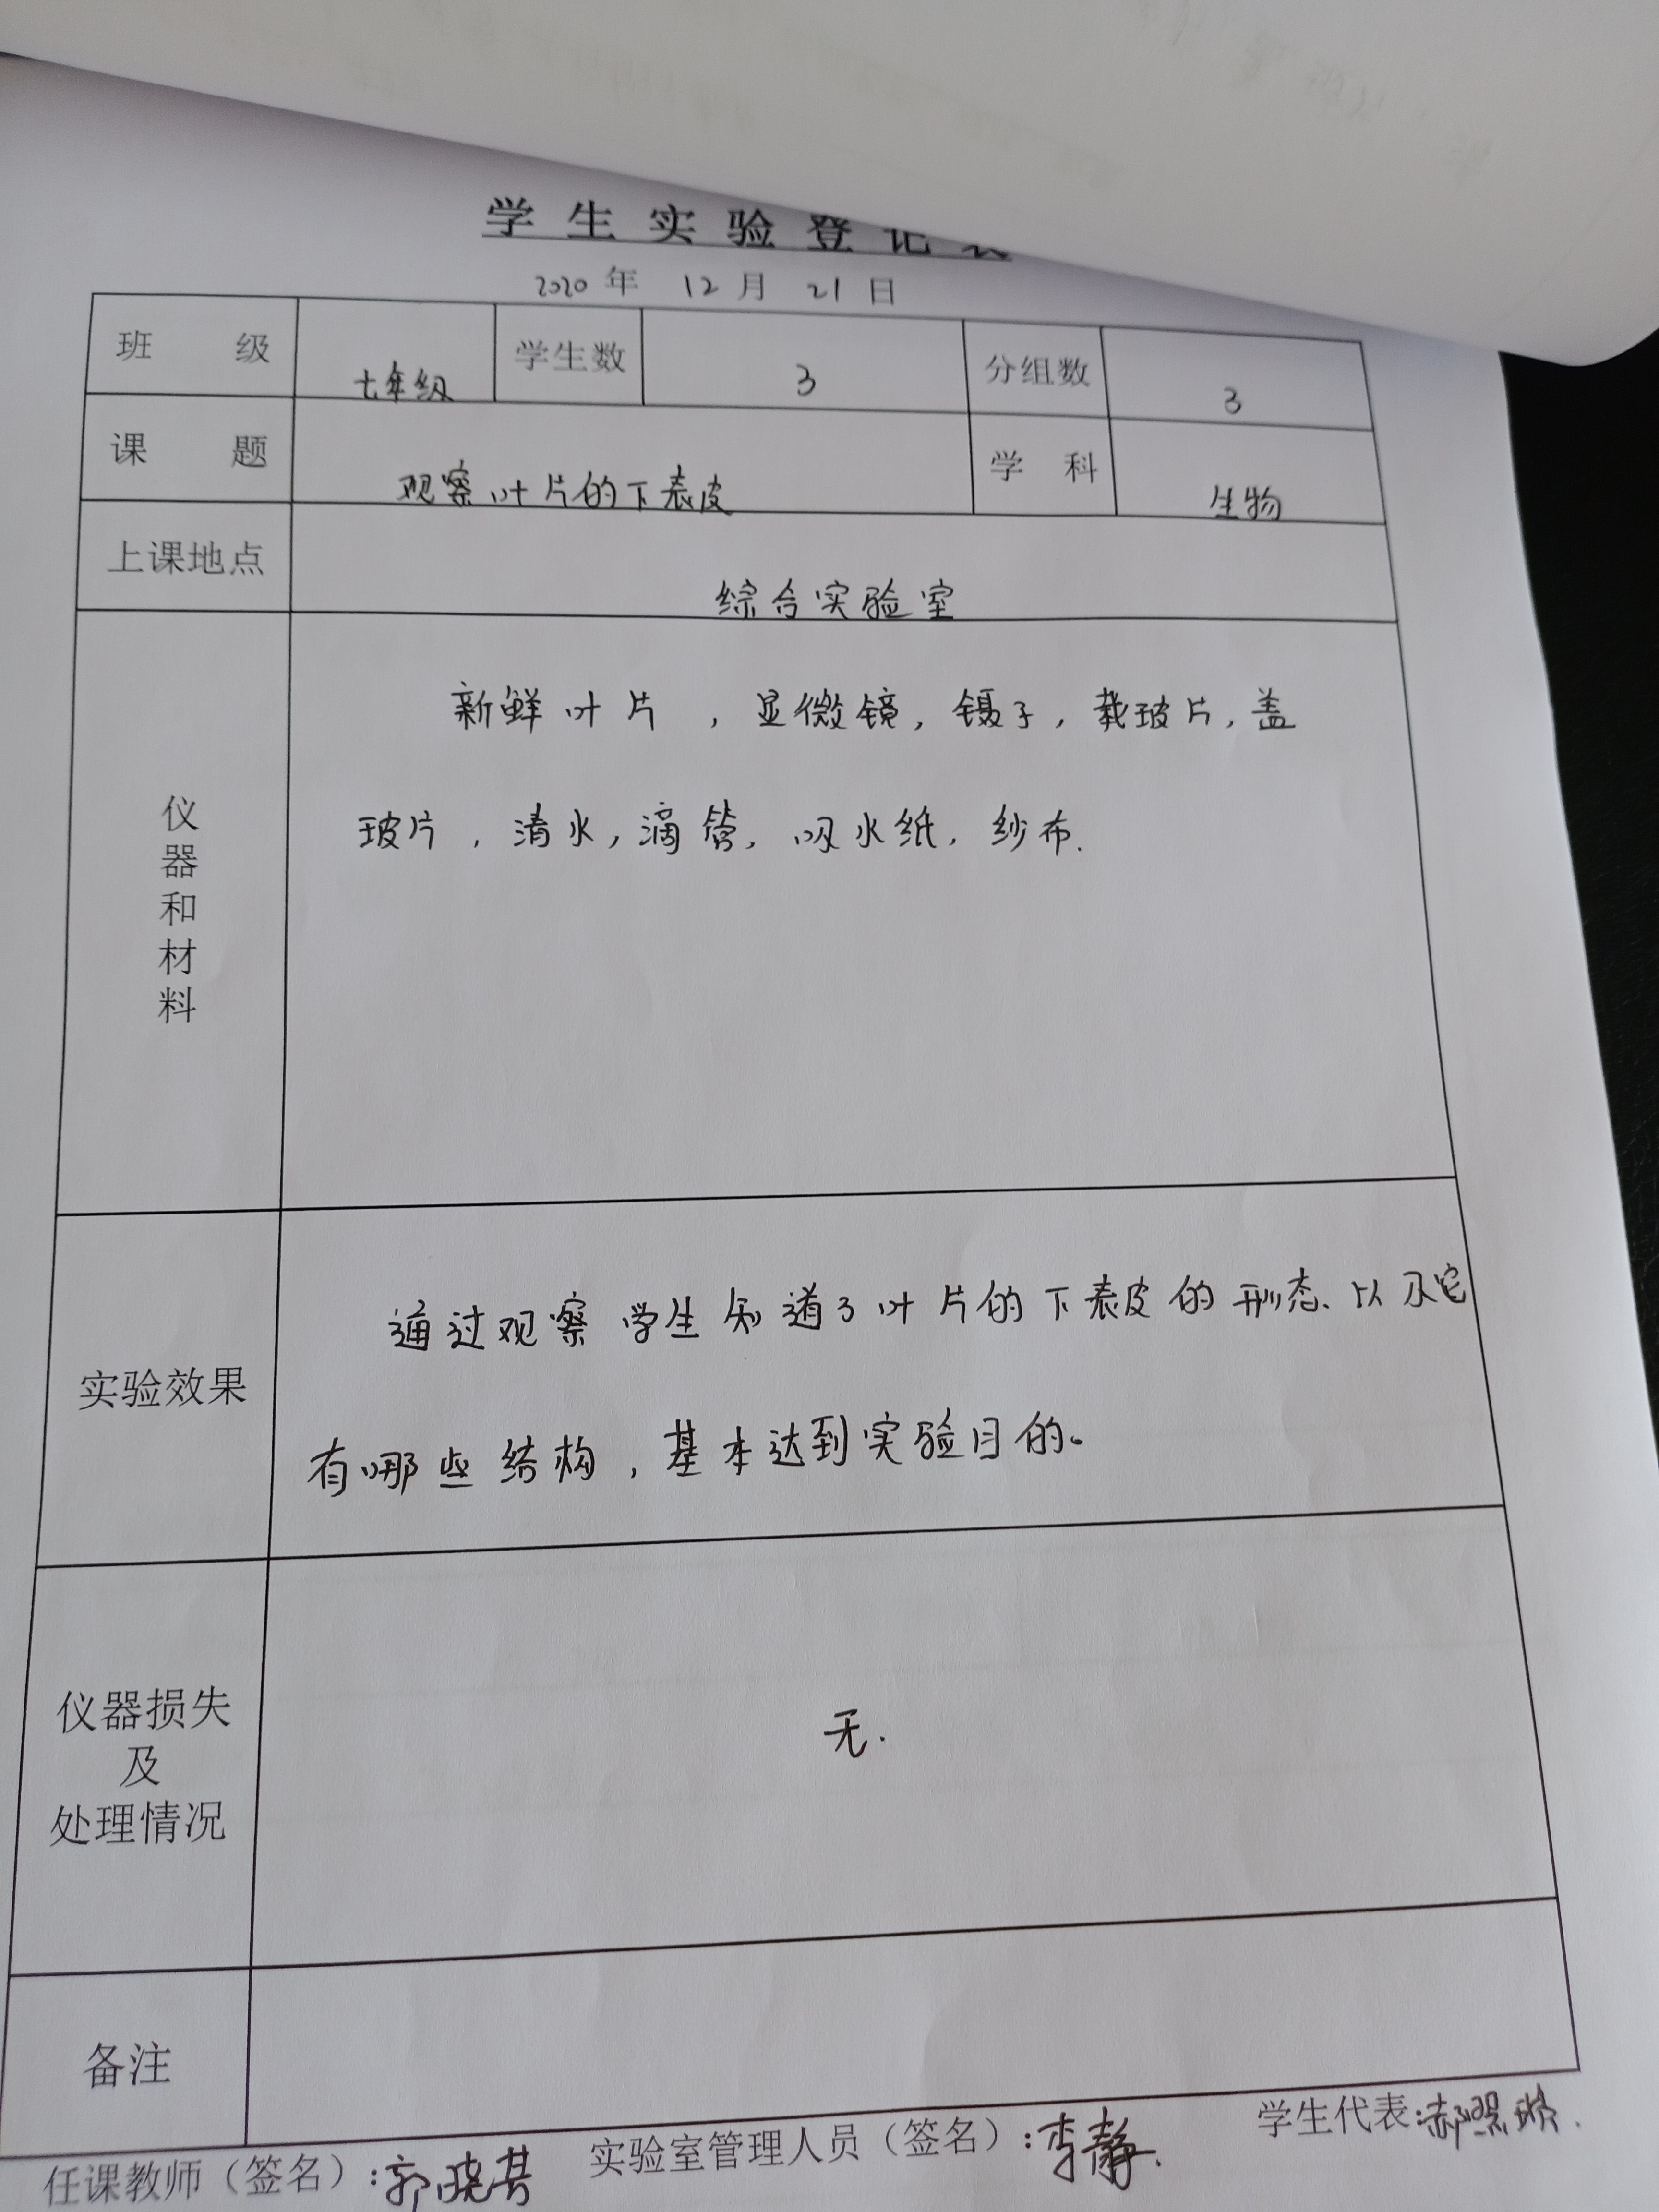 学生实验登记表
2020年 12月 21日
班 级 七年级 学生数 3 分组数 3
课 题 观察叶片的下表皮 学 科 生物
上课地点 综合实验室
仪器和材料
新鲜叶片，显微镜，镊子，载玻片，盖
玻片，清水，滴管，吸水纸，纱布.
实验效果
通过观察学生知道了叶片的下表皮的形态、以及它
有哪些结构，基本达到实验目的。
仪器损失
及
处理情况
无.
备注
任课教师（签名）:郭晓 实验室管理人员（签名）:李静. 学生代表:郝